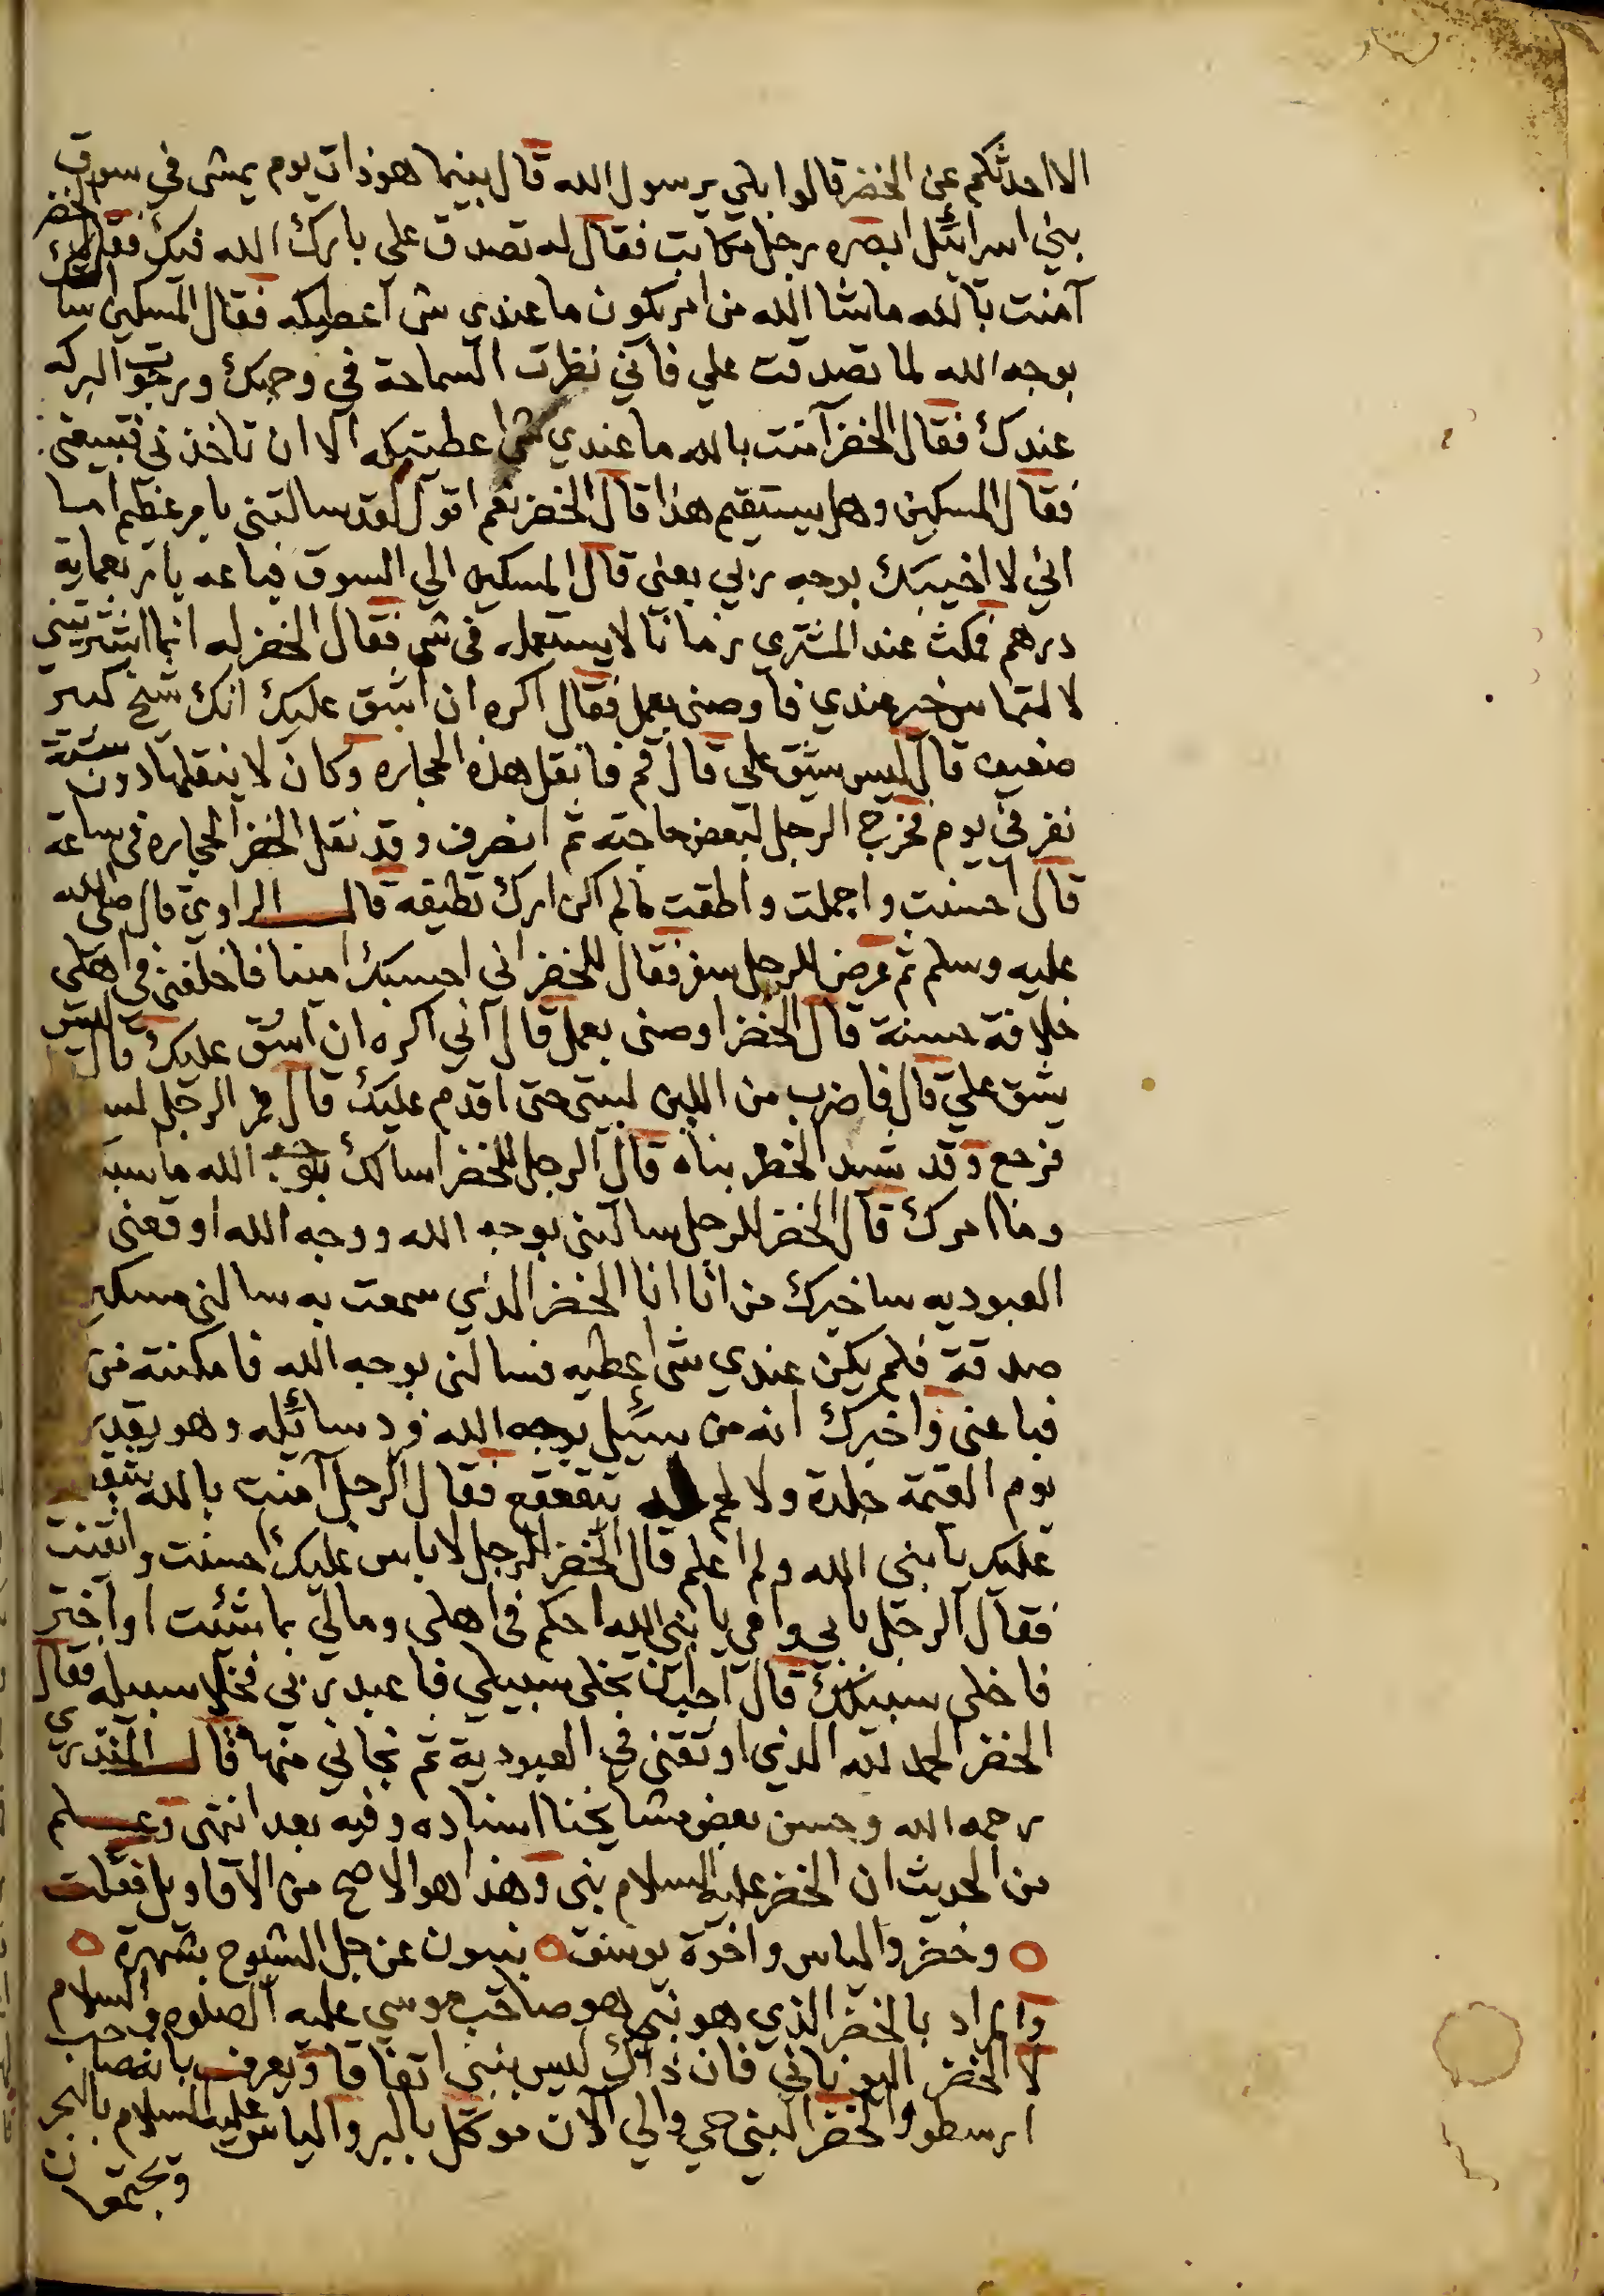 الا احدثكم عن الخضر قالوا بلي يرسول الله قال بينما هو ذات يوم يمشي في سوق
بني اسرائيل ابصره رجل مكاتب فقال له تصدق علي بارك الله فيك فقال الخضر
آمنت بالله ماشا الله من امر يكون ما عندي شي اعطيكه فقال المسكين اسالك
بوجه الله لما تصدقت علي فاني نظرت السماحة في وجهك ورجوت البركه
عندك فقال الخضر آمنت بالله ما عندي شي اعطيتكه الا ان تاخذني فتبيعني
فقال المسكين وهل يستقيم هذا قال الخضر نعم اقول لقد سالتني بامر عظيم اما
اني لا اخيبك بوجه ربي بعني قال المسكين الي السوق فباعه باربعماية
درهم فمكث عند المشتري زمانا لا يستعمله في شي فقال الخضر له انما اشتريتني
لالتماس خير عندي فاوصني بعمل فقال اكره ان اشق عليك انك شيخ كبير
ضعيف قال ليس يشق علي قال قم فانقل هذه الحجاره وكان لا ينقلها دون ستة
نفر في يوم فخرج الرجل لبعض حاجته ثم انصرف وقد نقل الخضر الحجاره في ساعة
قال احسنت واجملت واطقت مالم اكن ارك تطيقه قال الراوي قال صلى الله
عليه وسلم ثم عرض للرجل سفر فقال للخضر اني احسبك امينا فاخلفني في اهلي
خلافة حسنة قال الخضر اوصني بعمل قال اني اكره ان اشق عليك قال ليس
يشق علي قال فاضرب من اللبن لبيتي حتى اقدم عليك قال فمر الرجل لسـ
فرجع وقد شيد الخضر بناه قال الرجل للخضر اسالك بوجه الله ما سبـ
وما امرك قال الخضر للرجل سالتني بوجه الله ووجه الله اوقعني
العبوديه ساخبرك من انا انا الخضر الذي سمعت به سالني مسكين
صدقة فلم يكن عندي شي اعطيه فسالني بوجه الله فامكنته من
فباعني واخبرك انه من سئيل بوجه الله فرد سائله وهو يقدر
يوم القيمة جلدة ولا لحم له يتقعقع فقال الرجل آمنت بالله شققت
عليك يا نبي الله ولم اعلم قال الخضر للرجل لا باس عليك احسنت واتقنت
فقال الرجل بابي وامي يا نبي الله احكم في اهلي ومالي بما شئت او اختر
فاخلي سبيلك قال احب ان تخلي سبيلي فاعبد ربي فخلا سبيله فقال
الخضر الحمد لله الذي اوثقني في العبودية ثم نجاني منها قال المنذري
رحمه الله وحسن بعض مشايخنا اسناده وفيه بعد انتهى وعلم
من الحديث ان الخضر عليه السلام نبي وهذا هو الاصح من الاقاويل فقلت
وخضر والياس واخوة يوسف نبيون عن جل الشيوخ بشهرة
والمراد بالخضر الذي هو نبي هو صاحب موسي عليه الصلوه والسلام
لا الخضر اليوناني فان ذاك ليس بنبي اتفاقا ويعرف بانه صاحب
ارسطو والخضر النبي حي والي الآن موكل بالبر والياس عليه السلام بالبحر
ويجتمعان